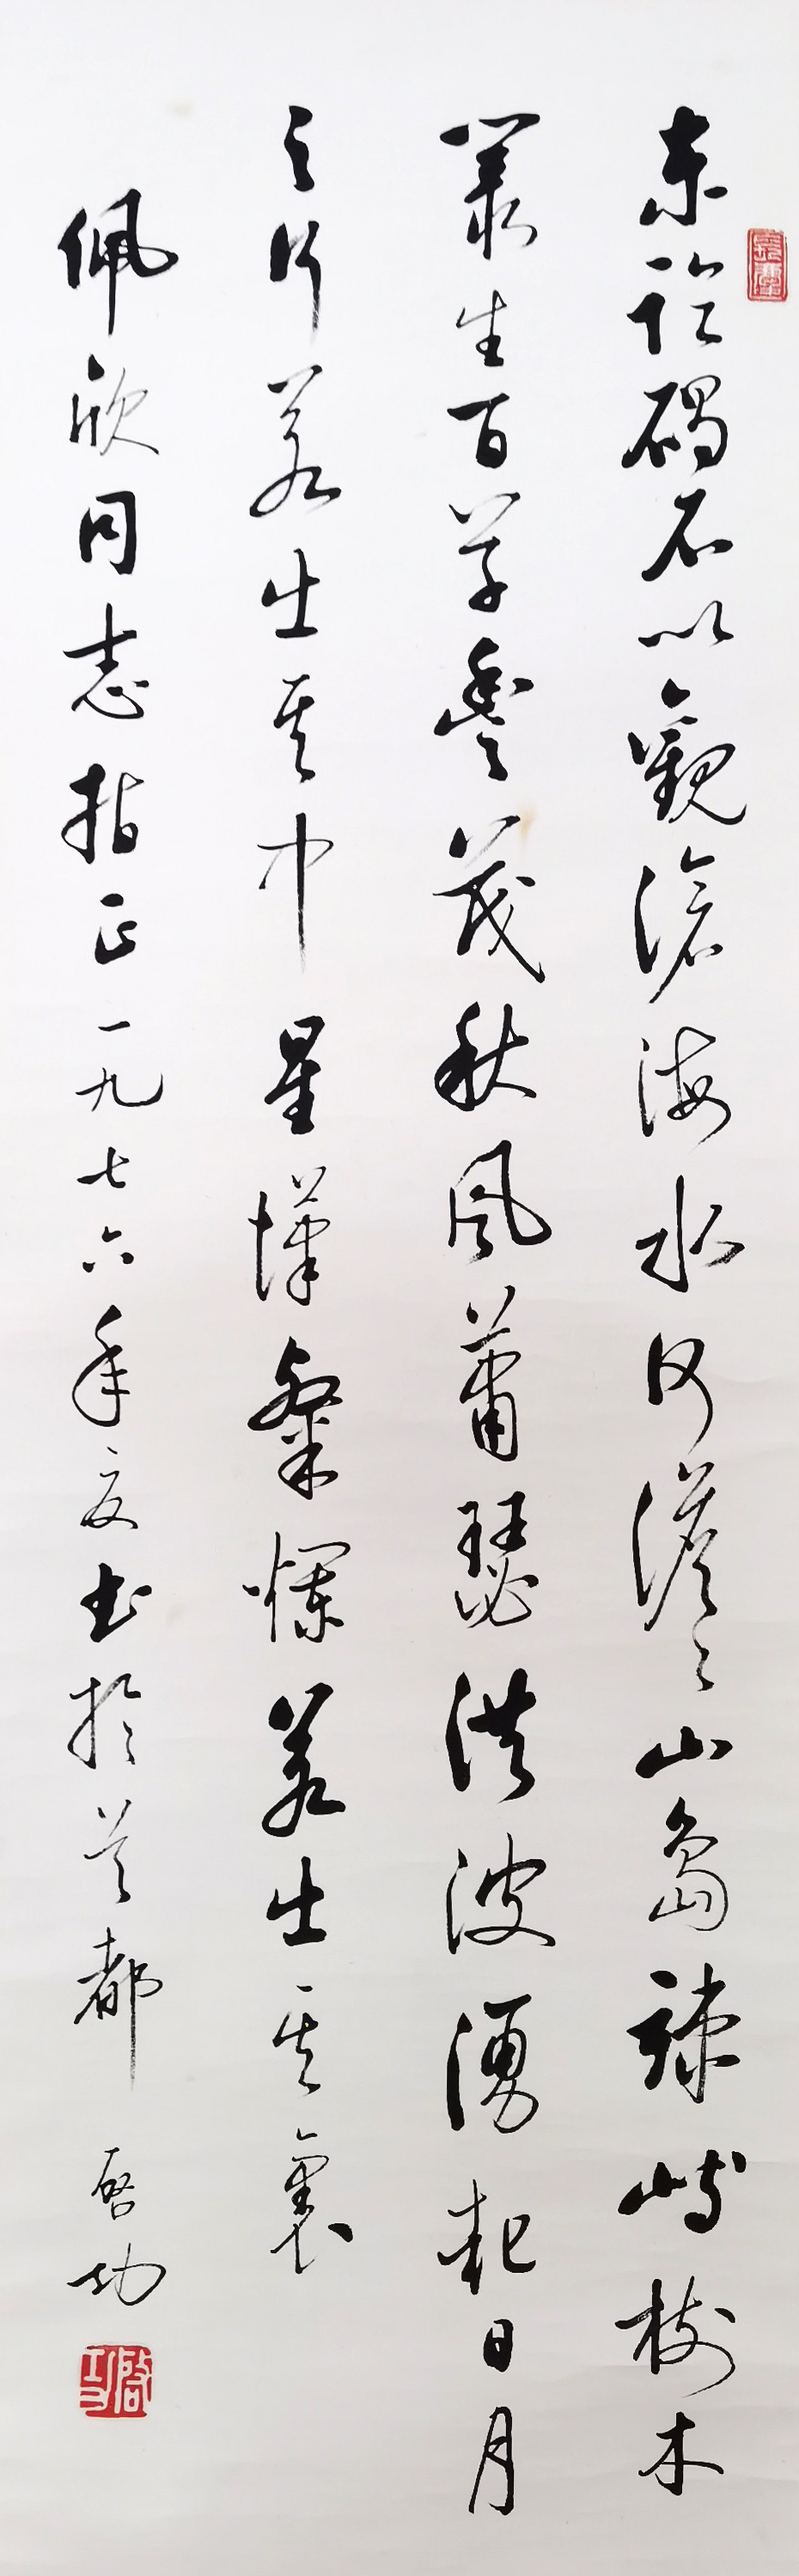 東臨碣石以觀滄海水何澹〻山島竦峙樹木
叢生百草豐茂秋風蕭瑟洪波湧起日月
之行若出其中星漢粲爛若出其裏
佩欣同志指正一九七六年夏書於首都 啓功
啓功